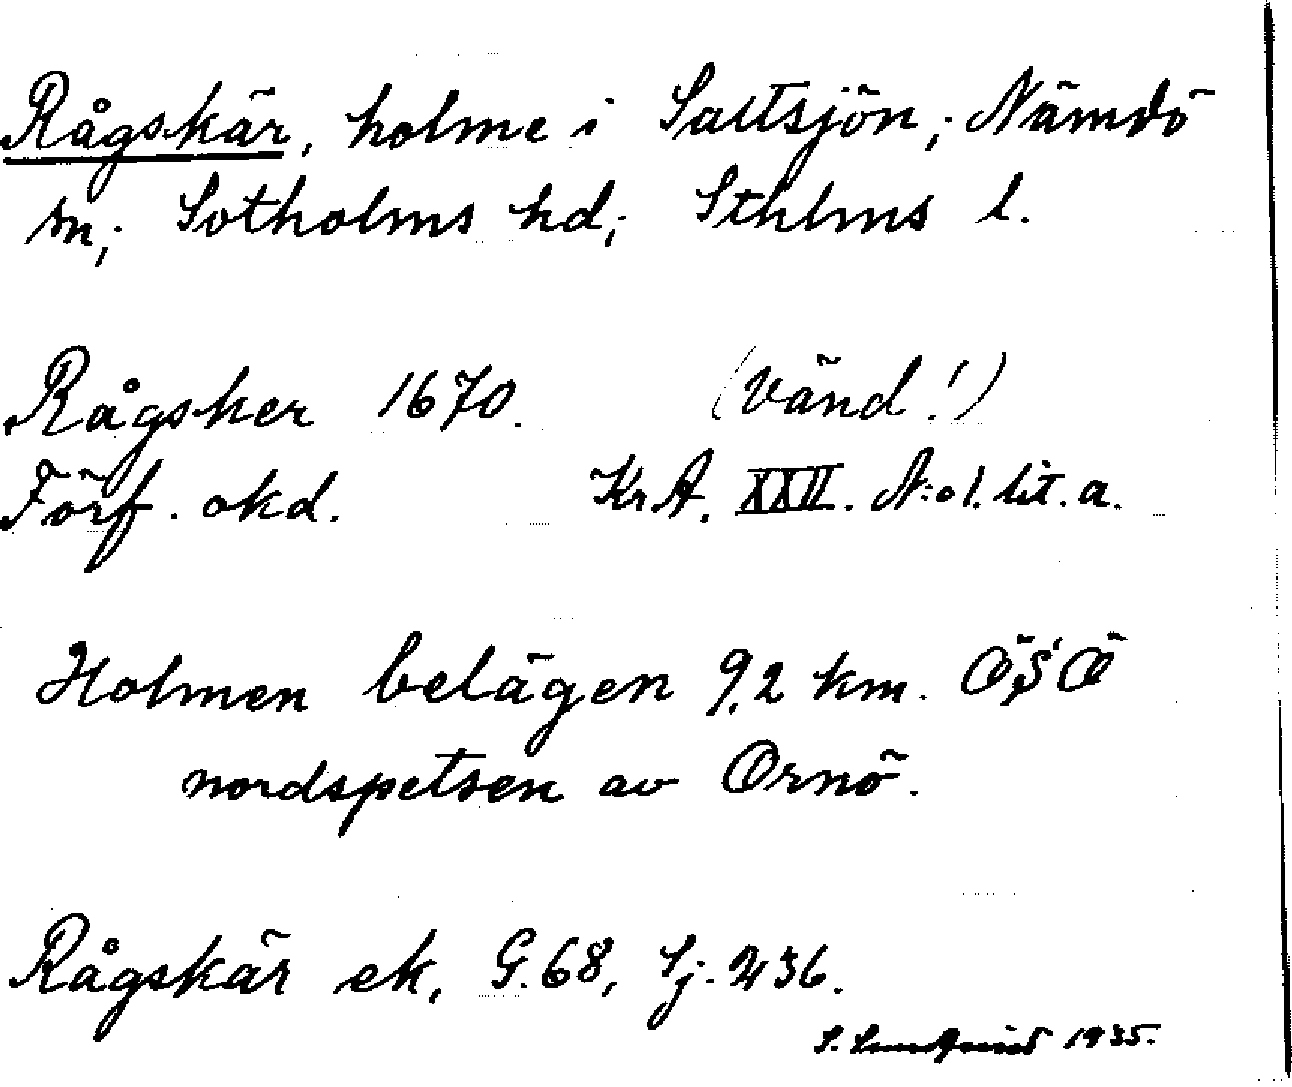 Rågskär, holme i Saltsjön; Nämdö
sn; Sotholms hd; Sthlms l.
Rågsker 1670. (Vänd!)
Förf. okd. Kr.A. XXII. N:o 1. lit. a.
Holmen belägen 9,2 km. ÖSÖ
nordspetsen av Ornö.
Rågskär ek, G. 68, Sj. 236.
S. 1935.